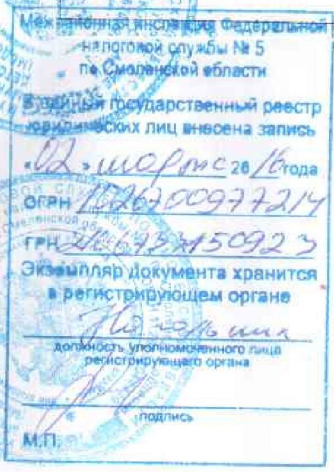 Межрайонная инспекция Федеральной
налоговой службы № 5
по Смоленской области
В Единый государственный реестр
юридических лиц внесена запись
«02» марта 2016 года
ОГРН 1026700977214
ГРН
Экземпляр документа хранится
в регистрирующем органе
Начальник
должность уполномоченного лица
регистрирующего органа
подпись
М.П.